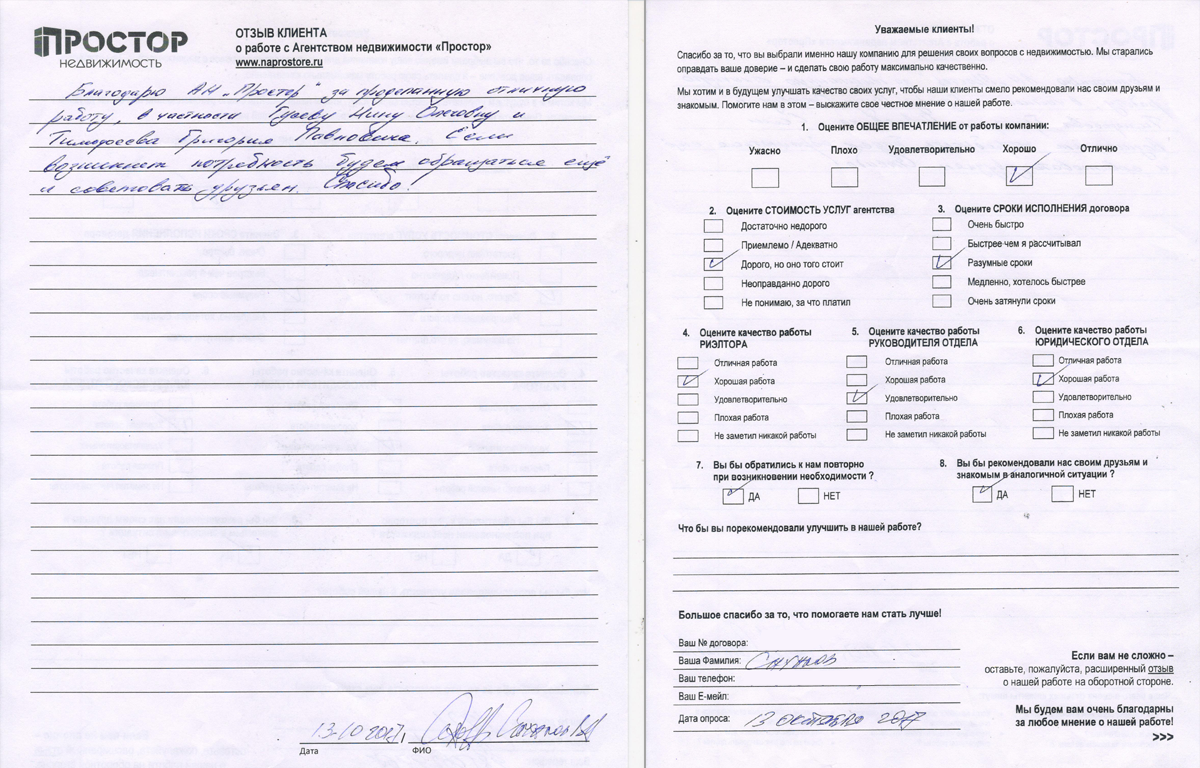 ПРОСТОР
НЕДВИЖИМОСТЬ
ОТЗЫВ КЛИЕНТА
о работе с Агентством недвижимости «Простор»
www.naprostore.ru
Благодарю АН „Простор" за проделанную отличную
работу, в частности Гуреву Нину Олеговну и
Тимофеева Григория Павловича. Если
возникнет потребность будем обращаться ещё
и советовать друзьям. Спасибо!
13.10.2017г
Дата
ФИО
Уважаемые клиенты!
Спасибо за то, что вы выбрали именно нашу компанию для решения своих вопросов с недвижимостью. Мы старались
оправдать ваше доверие – и сделать свою работу максимально качественно.
Мы хотим и в будущем улучшать качество своих услуг, чтобы наши клиенты смело рекомендовали нас своим друзьям и
знакомым. Помогите нам в этом – выскажите свое честное мнение о нашей работе.
1. Оцените ОБЩЕЕ ВПЕЧАТЛЕНИЕ от работы компании:
Ужасно Плохо Удовлетворительно Хорошо Отлично
2. Оцените СТОИМОСТЬ УСЛУГ агентства
Достаточно недорого
Приемлемо / Адекватно
Дорого, но оно того стоит
Неоправданно дорого
Не понимаю, за что платил
3. Оцените СРОКИ ИСПОЛНЕНИЯ договора
Очень быстро
Быстрее чем я рассчитывал
Разумные сроки
Медленно, хотелось быстрее
Очень затянули сроки
4. Оцените качество работы
РИЭЛТОРА
Отличная работа
Хорошая работа
Удовлетворительно
Плохая работа
Не заметил никакой работы
5. Оцените качество работы
РУКОВОДИТЕЛЯ ОТДЕЛА
Отличная работа
Хорошая работа
Удовлетворительно
Плохая работа
Не заметил никакой работы
6. Оцените качество работы
ЮРИДИЧЕСКОГО ОТДЕЛА
Отличная работа
Хорошая работа
Удовлетворительно
Плохая работа
Не заметил никакой работы
7. Вы бы обратились к нам повторно
при возникновении необходимости ?
ДА НЕТ
8. Вы бы рекомендовали нас своим друзьям и
знакомым в аналогичной ситуации ?
ДА НЕТ
Что бы вы порекомендовали улучшить в нашей работе?
Большое спасибо за то, что помогаете нам стать лучше!
Ваш № договора:
Ваша Фамилия:
Ваш телефон:
Ваш Е-мейл:
Дата опроса: 13 октября 2017
Если вам не сложно –
оставьте, пожалуйста, расширенный отзыв
о нашей работе на оборотной стороне.
Мы будем вам очень благодарны
за любое мнение о нашей работе!
>>>